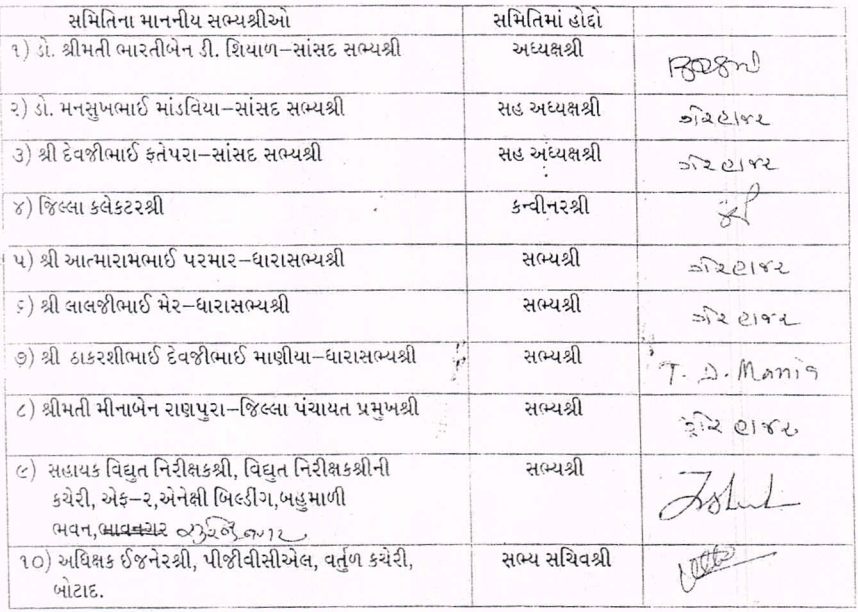 સમિતિના માનનીય સભ્યશ્રીઓ સમિતિમાં હોદ્દો
૧) ડો. શ્રીમતી ભારતીબેન ડી. શિયાળ–સાંસદ સભ્યશ્રી અધ્યક્ષશ્રી
૨) ડો. મનસુખભાઈ માંડવિયા–સાંસદ સભ્યશ્રી સહ અધ્યક્ષશ્રી ગેરહાજર
૩) શ્રી દેવજીભાઈ ફતેપરા–સાંસદ સભ્યશ્રી સહ અધ્યક્ષશ્રી ગેરહાજર
૪) જિલ્લા કલેકટરશ્રી કન્વીનરશ્રી
૫) શ્રી આત્મારામભાઈ પરમાર–ધારાસભ્યશ્રી સભ્યશ્રી ગેરહાજર
૬) શ્રી લાલજીભાઈ મેર–ધારાસભ્યશ્રી સભ્યશ્રી ગેરહાજર
૭) શ્રી ઠાકરશીભાઈ દેવજીભાઈ માણીયા–ધારાસભ્યશ્રી સભ્યશ્રી T. D. Mania
૮) શ્રીમતી મીનાબેન રાણપુરા–જિલ્લા પંચાયત પ્રમુખશ્રી સભ્યશ્રી ગેરહાજર
૯) સહાયક વિદ્યુત નિરીક્ષકશ્રી, વિદ્યુત નિરીક્ષકશ્રીની સભ્યશ્રી
કચેરી, એફ–૨,એનેક્ષી બિલ્ડીંગ,બહુમાળી
ભવન,ભાવનગર સુરેન્દ્રનગર
૧૦) અધિક્ષક ઈજનેરશ્રી, પીજીવીસીએલ, વર્તુળ કચેરી, સભ્ય સચિવશ્રી
બોટાદ.